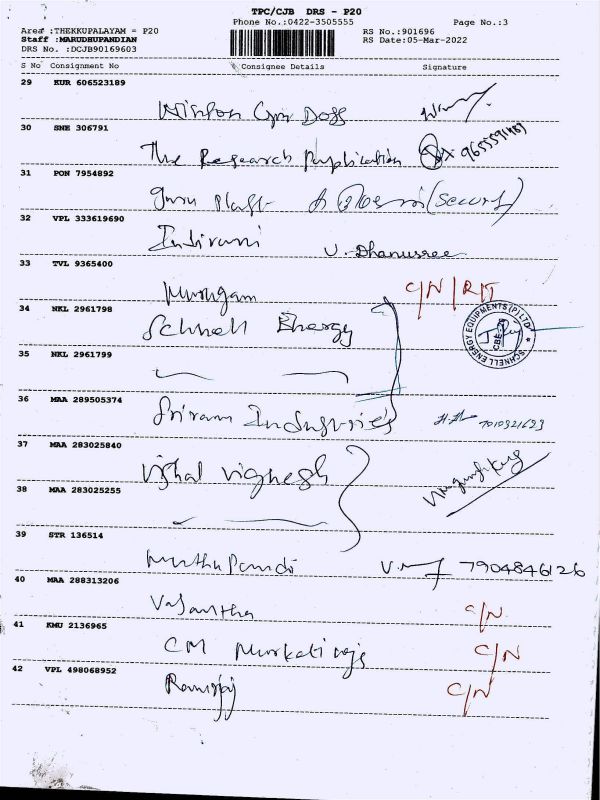 TPC/CJB DRS - P20
Phone No.:0422-3505555
Page No.:3
Area :THEKKUPALAYAM = P20
RS No.:901696
Staff :MARUDHUPANDIAN
RS Date:05-Mar-2022
DRS No. :DCJB90169603
S No Consignment No Consignee Details Signature
29 KUR 606523189
30 SNE 306791
The Research Puplication
31 PON 7954892
Guru Plast (Security)
32 VPL 333619690
Indirani V. Dhanussree
33 TVL 9365400
Murugam C/N / RTT
34 NKL 2961798
Schnell Energy
SCHNELL ENERGY EQUIPMENTS (P) LTD
35 NKL 2961799
36 MAA 289505374
Sriram Industries
37 MAA 283025840
Vishal Vignesh
38 MAA 283025255
39 STR 136514
Muthu Pandi 7904846126
40 MAA 288313206
Vasantha C/N
41 KMU 2136965
CM C/N
42 VPL 498068952
Ramraj C/N